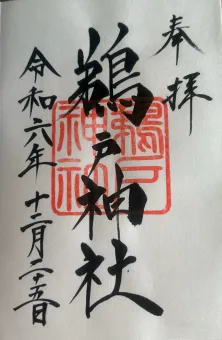 奉拝
鵜戸神社
鵜戸神社
令和六年十二月二十五日